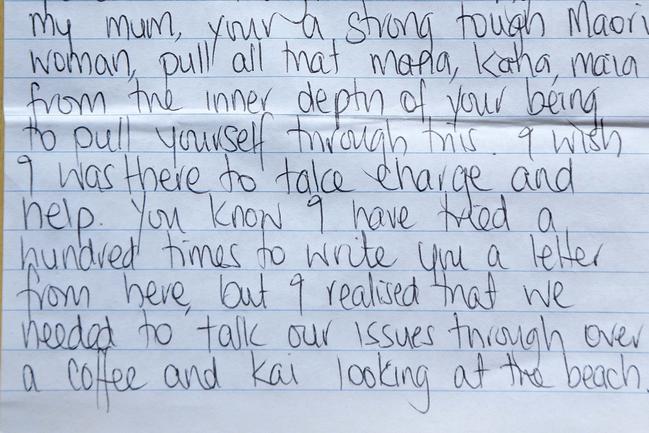 my mum, your a strong tough Maori
woman, pull all that mana, kaha, maia
from the inner depth of your being
to pull yourself through this. I wish
I was there to take charge and
help. You know I have tried a
hundred times to write you a letter
from here, but I realised that we
needed to talk our issues through over
a coffee and kai looking at the beach.